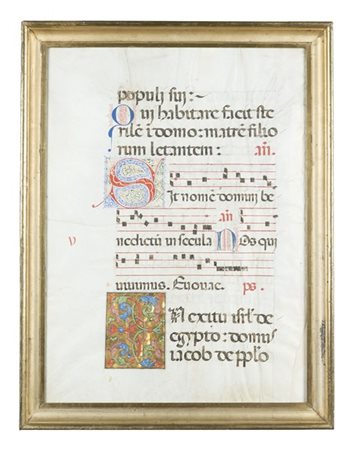 populi sui :~
Qui habitare facit ste
rilẽ ĩ domo: matrẽ filio
rum letantem : añ.
Sit nomẽ domini be
añ
v
nedictũ in secula Nos qui
vivimus. Evovae. ps.
IN exitu isrł de
egypto : domus
iacob de pplo